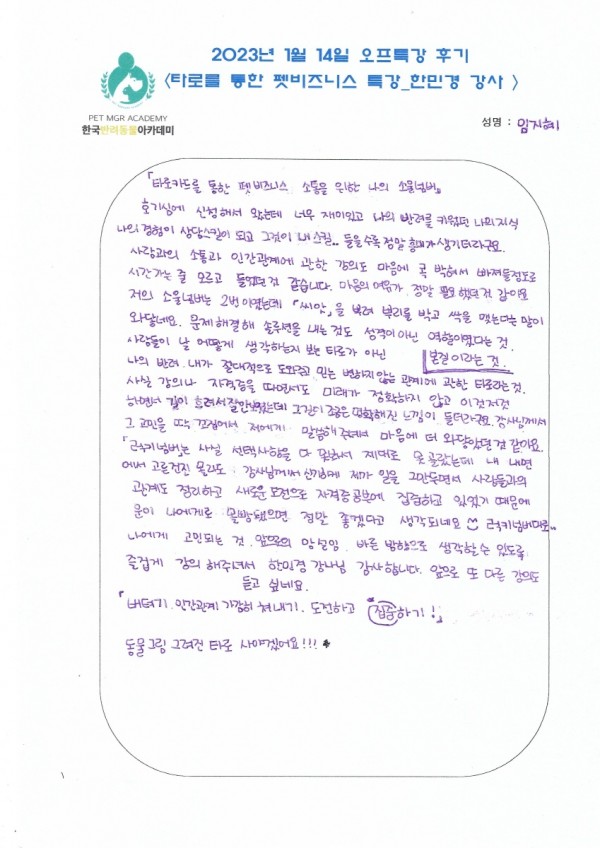 2023년 1월 14일 오프특강 후기
<타로를 통한 펫비즈니스 특강_한민경 강사 >
PET MGR ACADEMY
한국반려동물아카데미
성명 : 임지혜
「타로카드를 통한 펫비즈니스 소통을 위한 나의 소울넘버」
호기심에 신청해서 왔는데 너무 재미있고 나의 반려를 키웠던 나의 지식
나의 경험이 상담스킬이 되고 그것이 내 스킬.. 들을수록 정말 흥미가 생기더라구요.
사람과의 소통과 인간관계에 관한 강의도 마음에 콕 박혀서 빠져들정도로
시간가는 줄 모르고 들었던것 같습니다. 마음의 여유가 정말 필요했던것 같아요
저의 소울넘버는 2번이였는데 「씨앗」을 뿌려 뿌리를 박고 싹을 맺는다는 말이
와닿네요. 문제해결해 솔루션을 내는것도 성격이아닌 역할이였다는 것.
사람들이 날 어떻게 생각하는지 보는 타로가 아닌 본질이라는 것.
나의 반려. 내가 절대적으로 도와주고 믿는 변하지않는 관계에 관한 타로라는것.
사실 강의나 자격증을 따면서도 미래가 정확하지 않고 이것저것
하면서 길이 흐려서 잘안보였는데 그것이 조금은 명확해진 느낌이 들더라구요. 강사님께서
그 고민을 딱 꼬집어서 저에게 말씀해주셔서 마음에 더 와닿았던것 같아요.
「럭키넘버」는 사실 선택사항을 다 못해서 제대로 못 골랐는데 내 내면
에서 고르던진 몰라도 강사님께서 신기하게 제가 일을 그만두면서 사람들과의
관계도 정리하고 새로운 도전으로 자격증공부에 집중하고 있었기 때문에
운이 나에게로 몰빵됐으면 정말 좋겠다고 생각되네요 럭키넘버대로..
나에게 고민되는 것. 앞으로의 망설임. 바른 방향으로 생각할수 있도록
즐겁게 강의 해주셔서 한민경 강사님 감사합니다. 앞으로 또 다른 강의도
듣고 싶네요.
「버텨기. 인간관계 가감히 쳐내기. 도전하고 집중하기!」
동물그림 그려진 타로 사야겠어요!!!